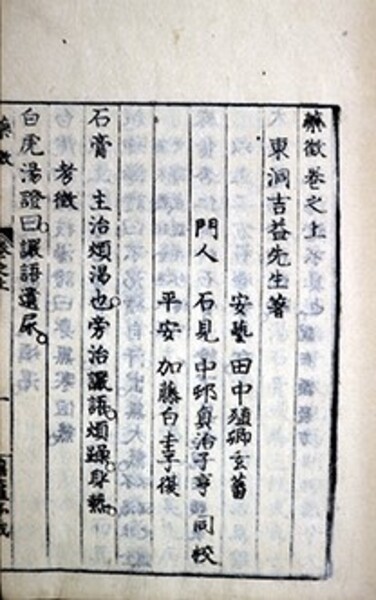 藥徵卷之上
東洞吉益先生著
安藝 田中殖卿玄蕃
門人 石見 中邨貞治子亨 同校
平安 加藤白圭子復
石膏 主治煩渴也。旁治讝語。煩躁。身熱。
考徵
白虎湯證曰。讝語遺尿。
藥徵
卷之上
一